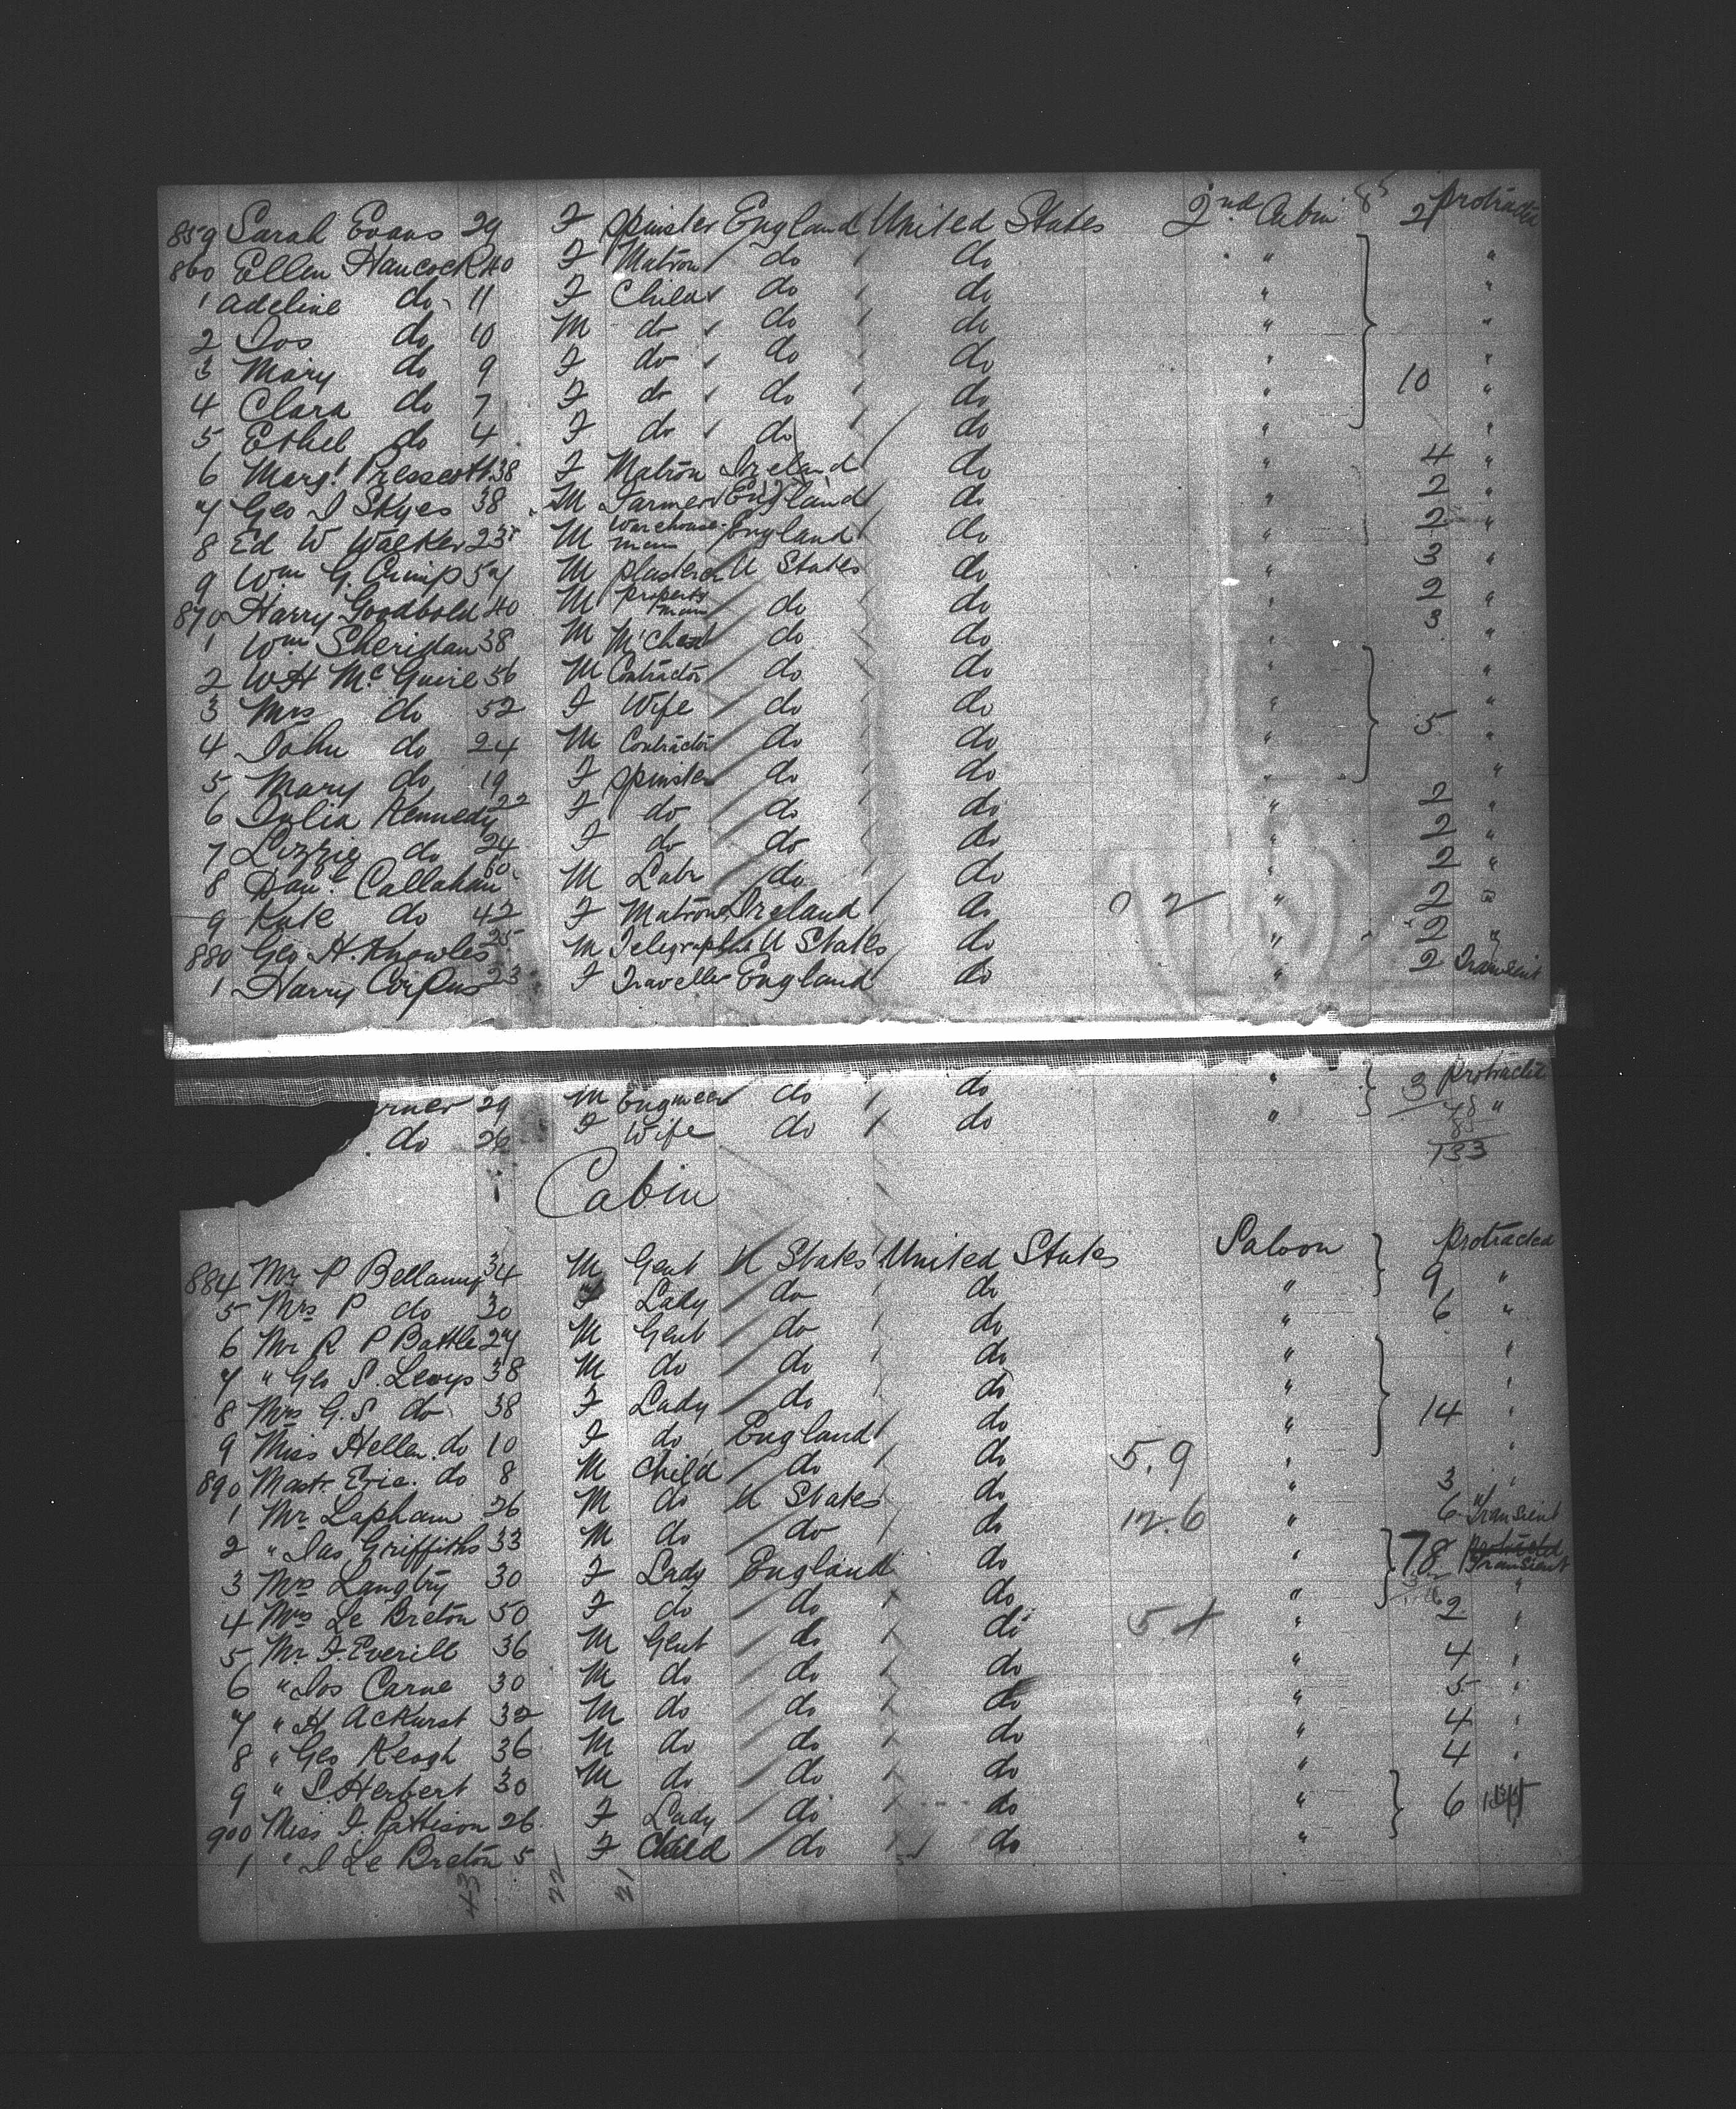 859 Sarah Evans 29 F Spinster England United States 2nd Cabin 85 2 Protracted
860 Ellen Hancock 40 F Matron do do " "
1 Adeline do 11 F Child do do " "
2 Jos do 10 M do do do " "
3 Mary do 9 F do do do " "
4 Clara do 7 F do do do " 10 "
5 Ethel do 4 F do do do " "
6 Margt Prescott 38 F Matron Ireland do " 4 "
7 Geo J Skyes 38 M Farmer England do " 2 "
8 Ed W Walker 23 M Warehouse-man England do " 2 "
9 Wm G. Crimp 57 M Plasterer U States do " 3 "
870 Harry Goodbold 40 M Property man do do " 2 "
1 Wm Sheridan 38 M do do " 3 "
2 WH McGuire 56 M Contractor do do " "
3 Mrs do 52 F Wife do do " "
4 John do 24 M Contractor do do " 5 "
5 Mary do 19 F Spinster do do " "
6 Julia Kennedy 22 F do do do " 2 "
7 Lizzie do 24 F do do do " 2 "
8 Danl Callahan 60 M Labr do do " 2 "
9 Kate do 42 F Matron Ireland do 0 2 " 2 "
880 Geo H. Knowles 25 M Telegraphist U States do " 2 "
1 Harry 23 F Traveller England do " 2 Transient
rner 29 M Engineer do do " 3 Protracted
do 26 F Wife do do " "
133
Cabin
884 Mr P Bellamy 34 M Gent U States United States Saloon Protracted
5 Mrs P do 30 F Lady do do " 9 "
6 Mr R P Battle 27 M Gent do do " 6 "
7 " Geo S. Levys 38 M do do do " "
8 Mrs G.S do 38 F Lady do do " "
9 Miss Hellen do 10 F do England do " 14 "
890 Mastr Eric do 8 M Child do do 5.9 " "
1 Mr Lapham 26 M do U States do " 3 "
2 " Jas Griffiths 33 M do do do 12.6 " 6 Transient
3 Mrs Langtry 30 F Lady England do " 78 Transient
4 Mrs Le Breton 50 F do do do " "
5 Mr F. Everill 36 M Gent do do " 2 "
6 " Jos Carne 30 M do do do " 4 "
7 " H Ackurst 32 M do do do " 5 "
8 " Geo Keogh 36 M do do do " 4 "
9 " S. Herbert 30 M do do do " 4 "
900 Miss F. Pattison 26 F Lady do do " 6
1 " J Le Breton 5 F Child do do "
43 22 21